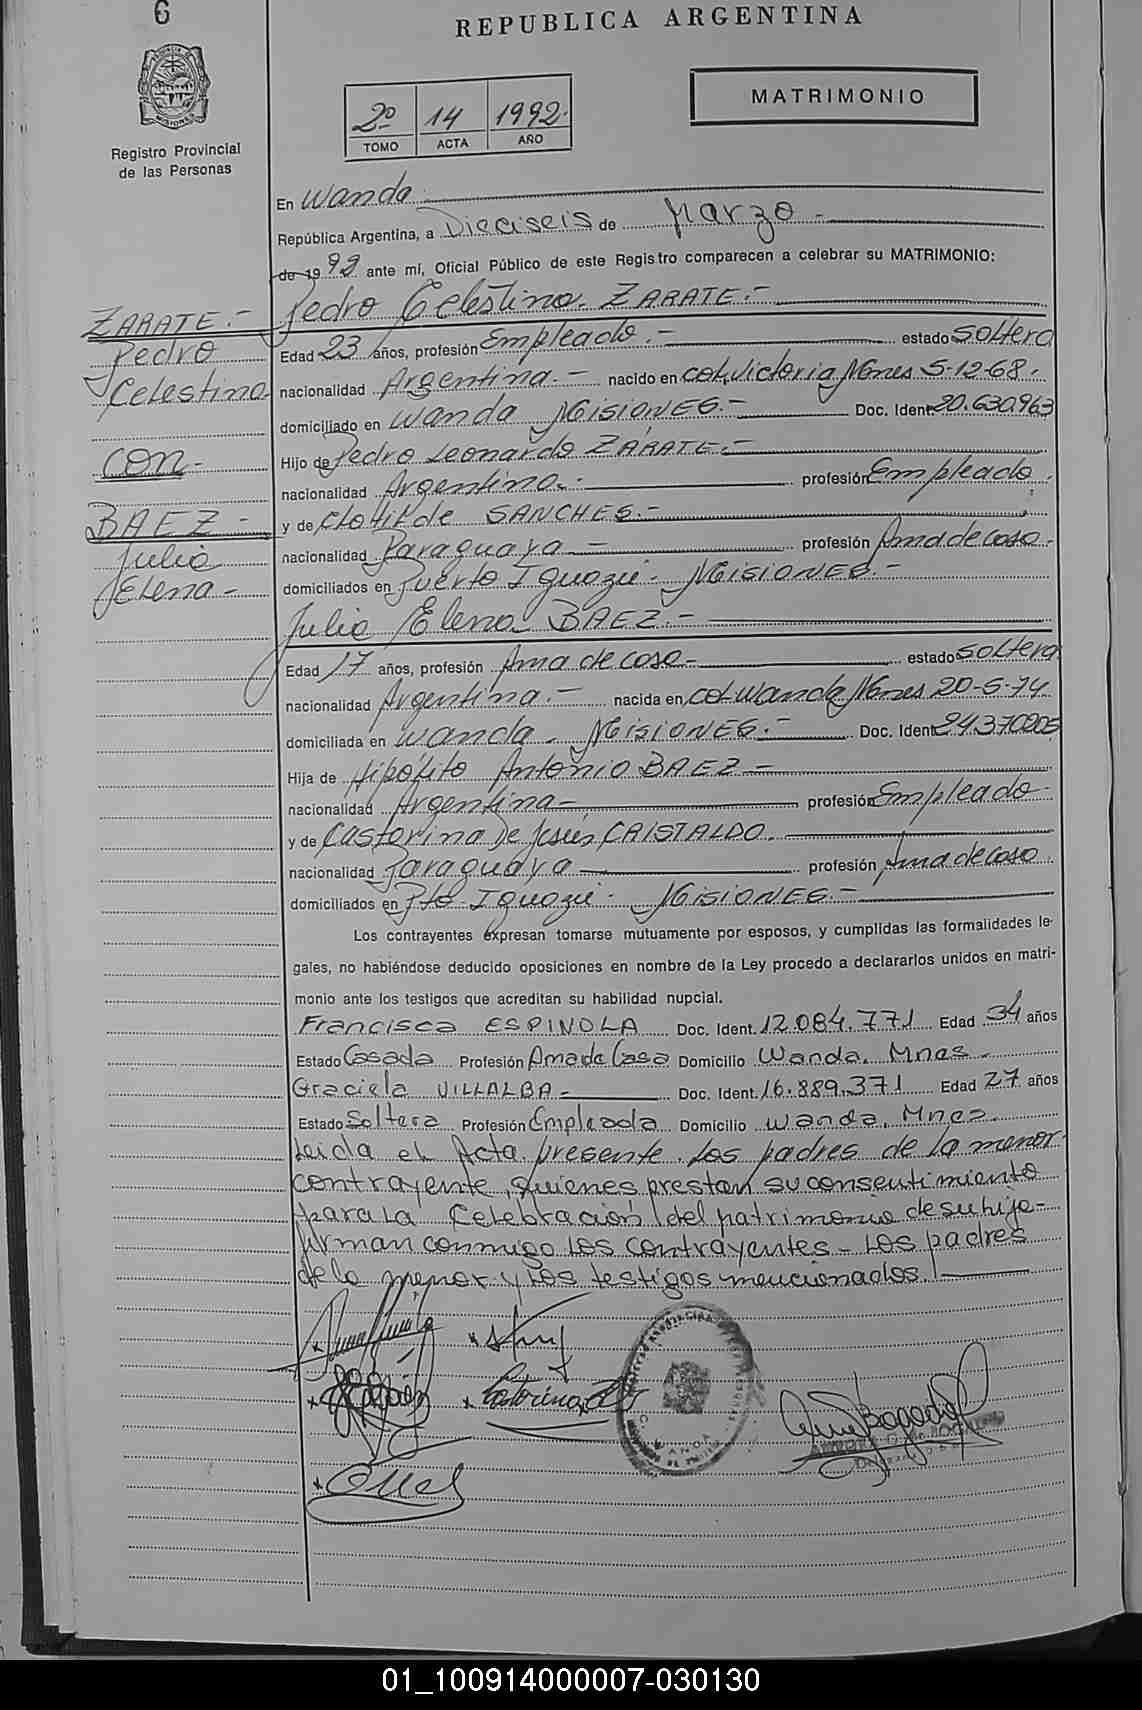 6
REPUBLICA ARGENTINA
2º 14 1992
TOMO ACTA AÑO
MATRIMONIO
Registro Provincial
de las Personas
En Wanda
República Argentina, a Dieciseis de Marzo -
de 1992 ante mí, Oficial Público de este Registro comparecen a celebrar su MATRIMONIO:
Pedro Celestino ZARATE.-
ZARATE.-
Pedro
Celestino
CON-
BAEZ-
Julia
Elena-
Edad 23 años, profesión Empleado.- estado Soltero
nacionalidad Argentina.- nacido en Col. Victoria Mnes 5-12-68.
domiciliado en Wanda MISIONES.- Doc. Ident 20.630.963
Hijo de Pedro Leonardo ZÁRATE.-
nacionalidad Argentino.- profesión Empleado.
y de Clotilde SANCHES.-
nacionalidad Paraguaya - profesión Ama de casa.
domiciliados en Puerto Iguazú. MISIONES.-
Julia Elena BAEZ.-
Edad 17 años, profesión Ama de casa- estado Soltera
nacionalidad Argentina.- nacida en Col. Wanda Mnes 20-5-74.
domiciliada en Wanda. MISIONES.- Doc. Ident 24.370205
Hija de Hipólito Antonio BAEZ-
nacionalidad Argentina- profesión Empleado-
y de Castorina De Jesús CRISTALDO.
nacionalidad Paraguaya profesión Ama de casa.
domiciliados en Pto-Iguazú. MISIONES.-
Los contrayentes expresan tomarse mutuamente por esposos, y cumplidas las formalidades le-
gales, no habiéndose deducido oposiciones en nombre de la Ley procedo a declararlos unidos en matri-
monio ante los testigos que acreditan su habilidad nupcial.
Francisca ESPINOLA Doc. Ident. 12.084.771 Edad 34 años
Estado Casada Profesión Ama de Casa Domicilio Wanda. Mnes -
Graciela VILLALBA- Doc. Ident. 16.889.371 Edad 27 años
Estado Soltera Profesión Empleada Domicilio Wanda. Mnes.
Leida el Acta presente. Los padres de la menor
contrayente, quienes prestan su consentimiento
para la Celebración del patrimonio de su hija-
firman conmigo los contrayentes - Los padres
de la menor y los testigos mencionados.
01_100914000007-030130